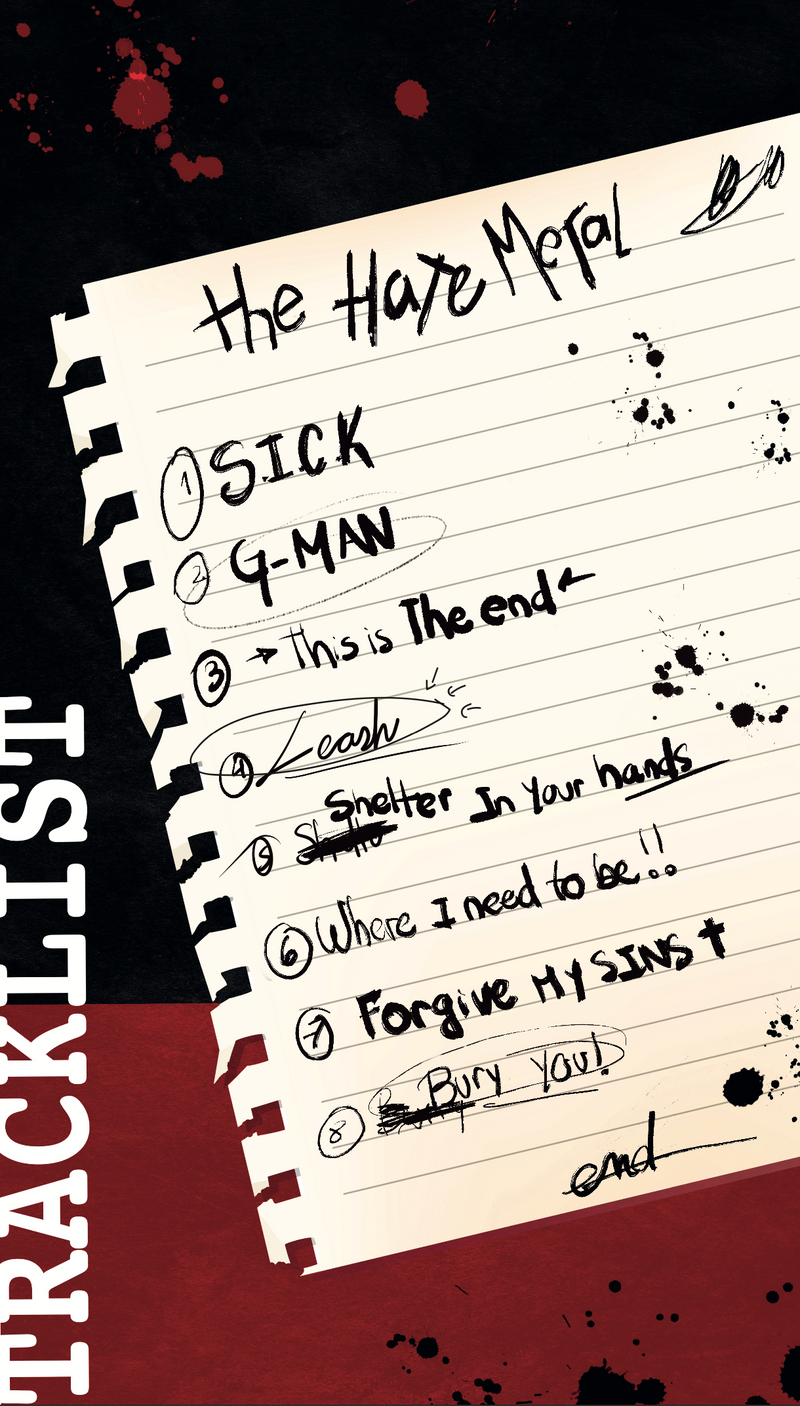 TRACKLIST
the Hate Metal
1 SICK
2 G-MAN
3 → This is The end ←
4 Leash
5 Shelter In Your hands
6 Where I need to be!!
7 Forgive MY SINS †
8 Bury you!
end